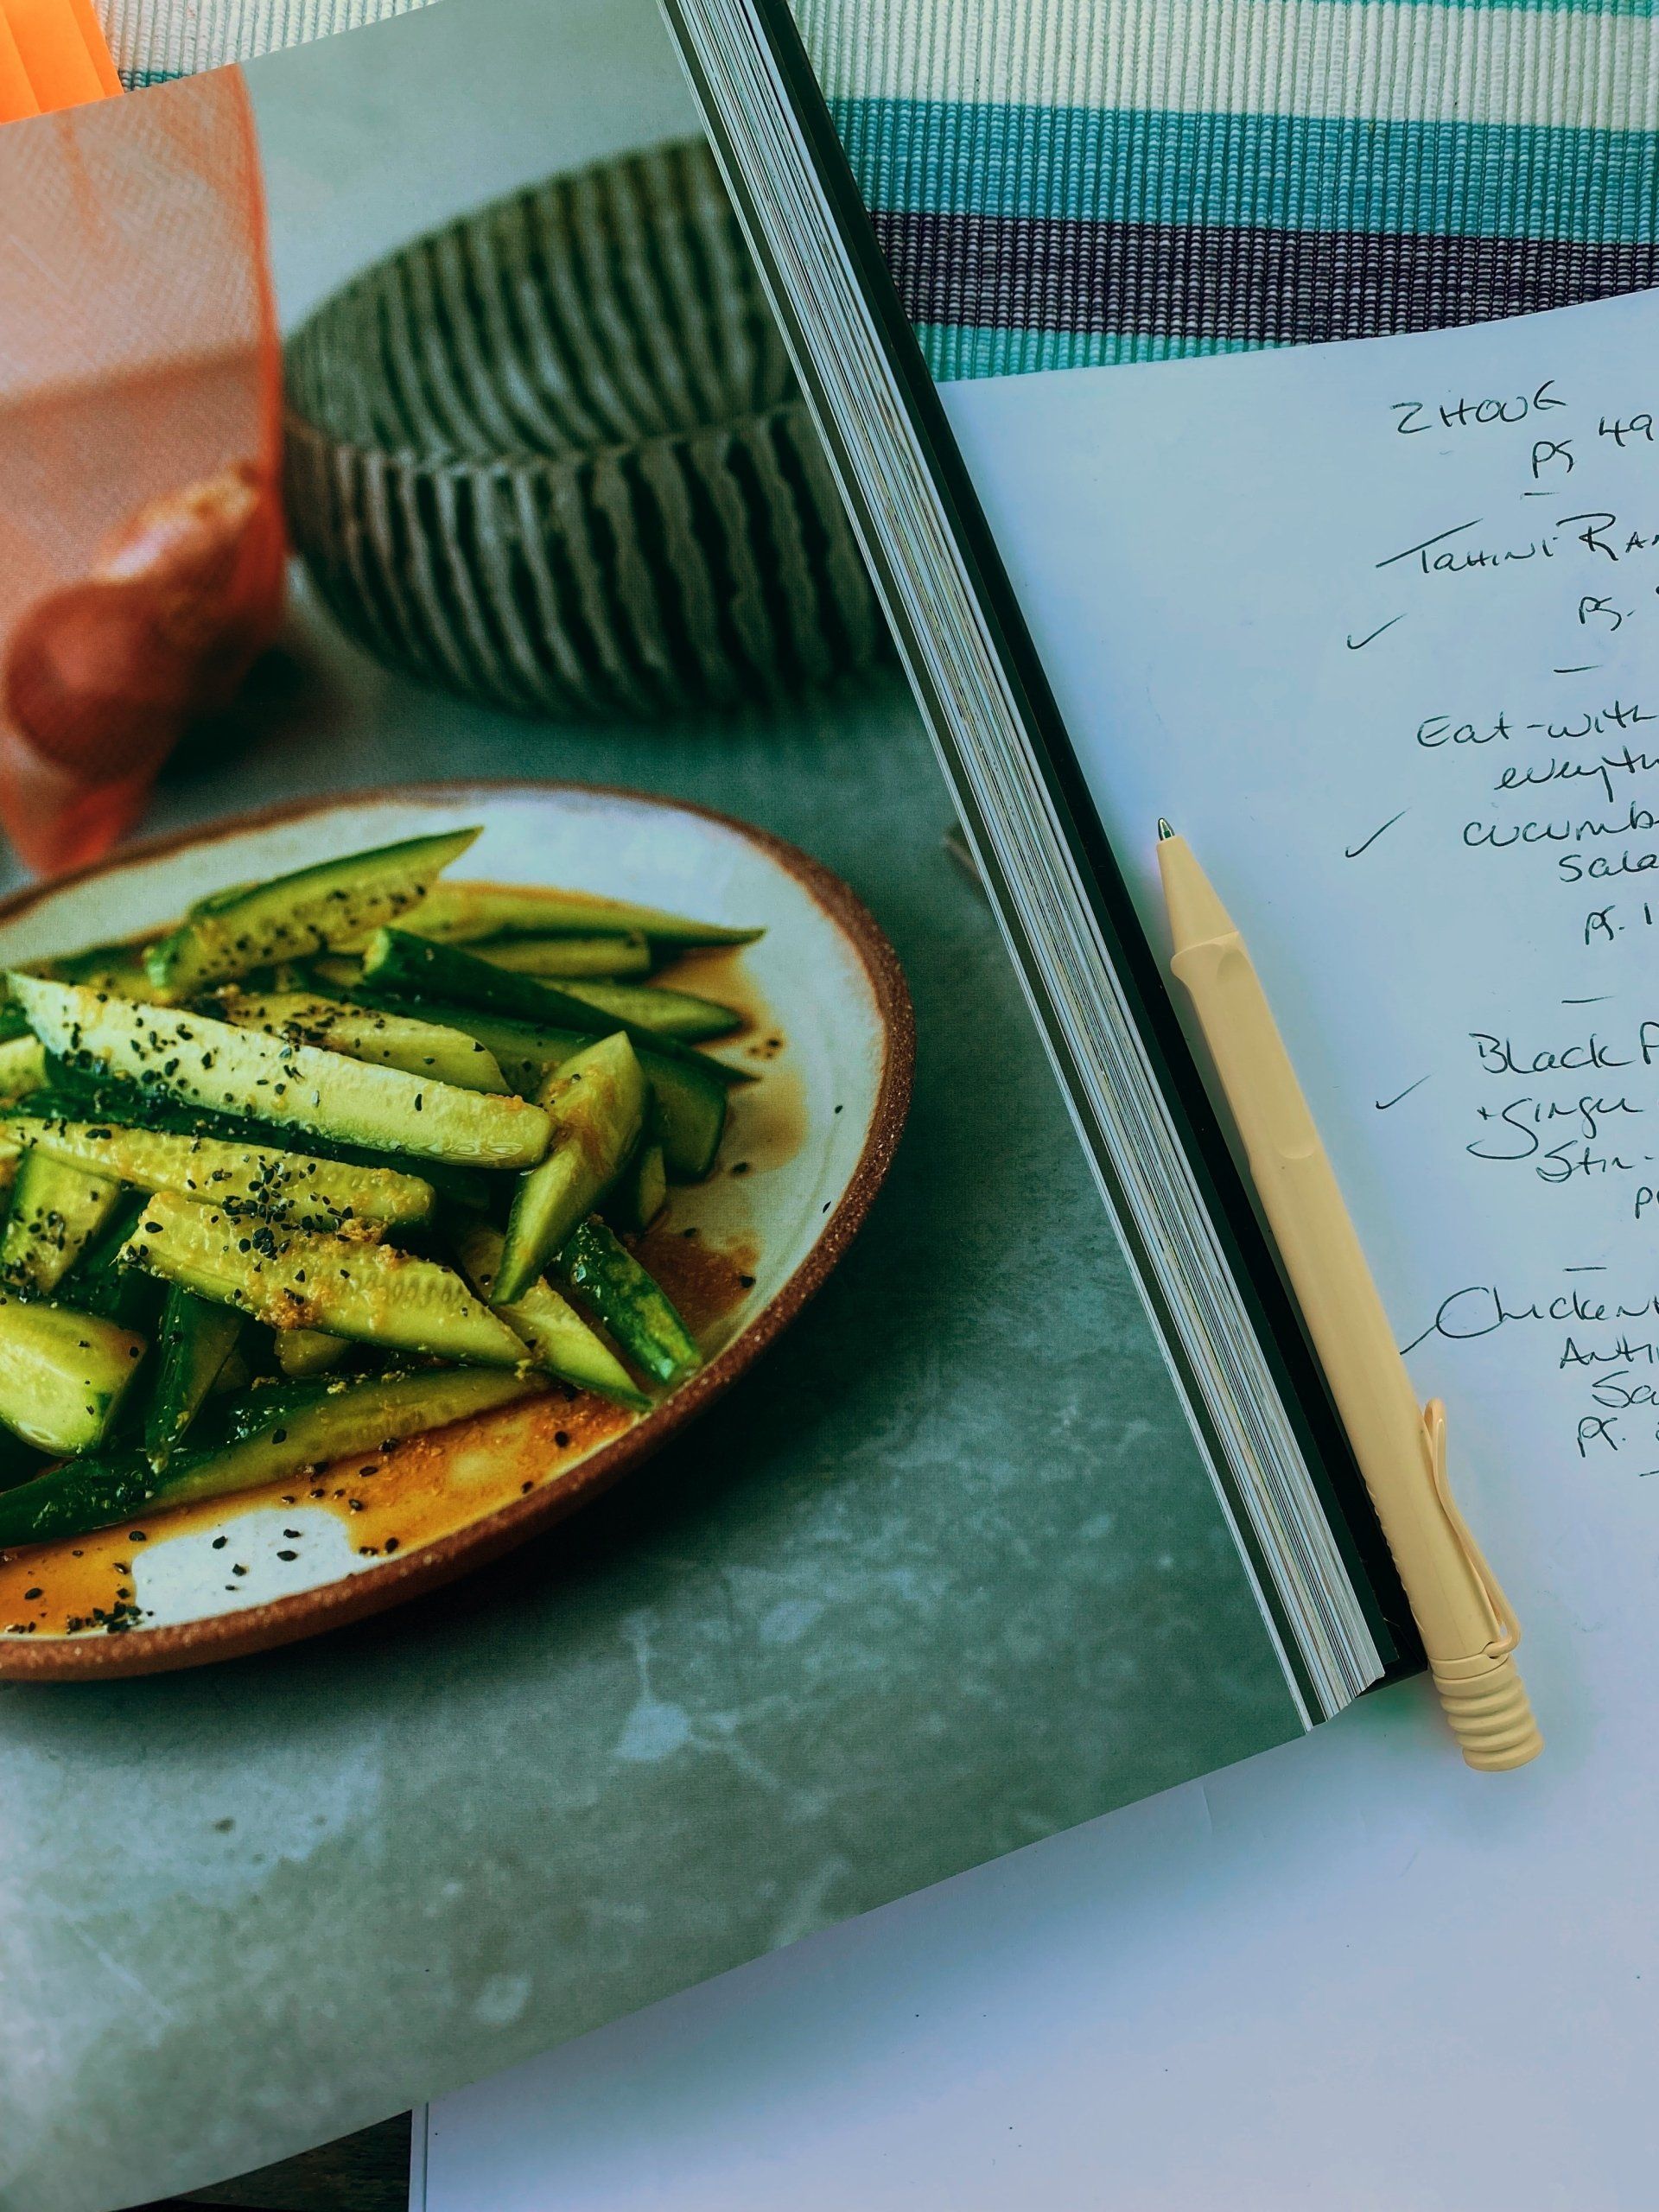 ZHOUG
pg 49
Tahini Ra
pg.
Eat-with
everyth
cucumb
Sala
pg. 1
Black P
+ Ginger
Stir-
p
Chicken
Anti
Sa
pg.